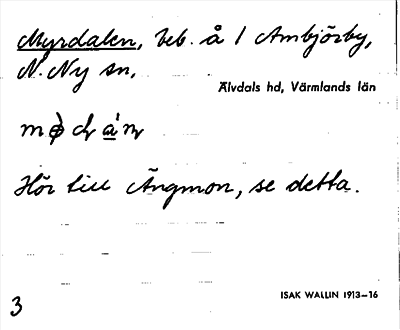 Myrdalen, beb. å 1 Ambjörby,
N. Ny sn,
Älvdals hd, Värmlands län
Hör till Ängmon, se detta.
ISAK WALLIN 1913–16
3